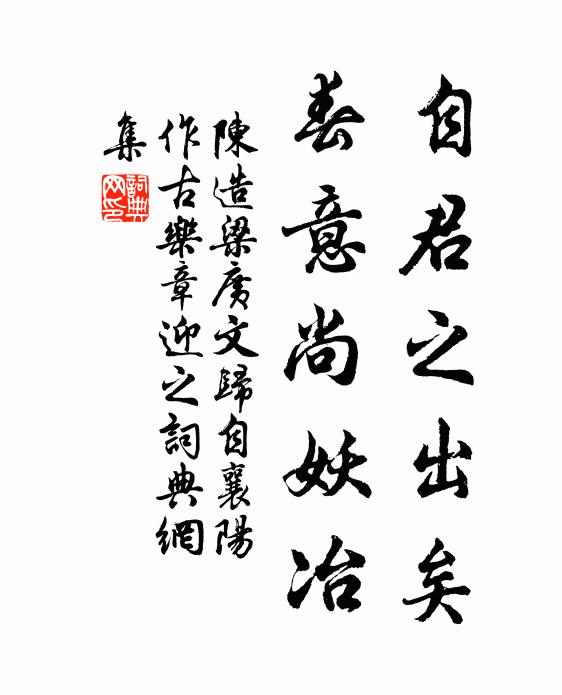 自君之出矣
春意尚妖冶
陳造梁廣文歸自襄陽
作古樂章迎之詞典網
集
詞典
网印